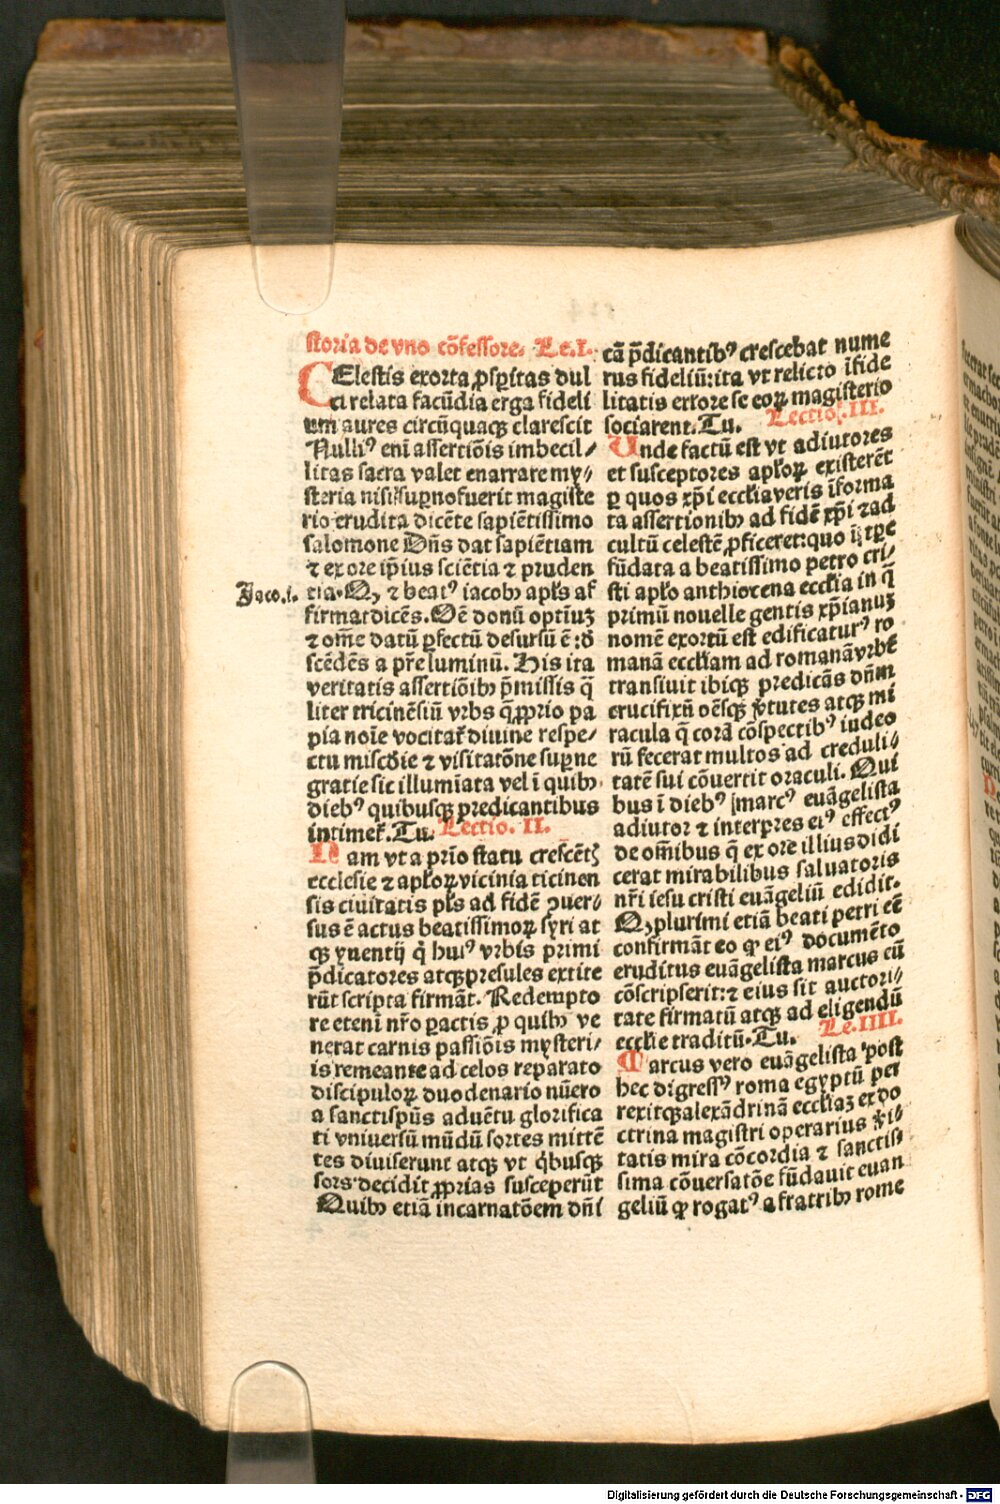 storia de vno cōfessore. Le.I.
CElestis exorta ꝓsꝑitas dul
ci relata facūdia erga fideli
um aures circūquaqꝫ clarescit
Nulliꝰ eni assertiōis imbecil⸗
litas sacra valet enarrare my⸗
steria nisi suꝑno fuerit magiste
rio erudita dicēte sapiētissimo
salomone Dn̄s dat sapiētiam
⁊ ex ore ip̄ius sciētia ⁊ pruden
Jaco.i.
tia. Qꝫ ⁊ beatꝰ iacobꝰ apl̄s af
firmat dicēs. Oē donū optiuꝫ
⁊ om̄e datū ꝑfectū desursū ē: d̄
scēdēs a pr̄e luminū. His ita
veritatis assertiōibꝫ p̄missis q̄
liter tricinēsiū vrbs q̄ ꝓprio pa
pia noīe vocitat̄ diuine respe⸗
ctu miscdīe ⁊ visitatōne suꝑne
gratie sic illumīata vel ī quibꝫ
diebꝰ quibusqꝫ predicantibus
intimet̄. Tu.
Lectio. II.
Nam vt a prīo statu crescētꝭ
ecclesie ⁊ apl̄oꝝ vicinia ticinen
sis ciuitatis pl̄s ad fidē ꝯuer⸗
sus ē actus beatissimoꝝ syri at
qꝫ yuentij q̇ huiꝰ vrbis primi
p̄dicatores atqꝫ presules extite
rūt scripta firmāt. Redempto
re eteni nr̄o ꝑactis ꝓ quibꝫ ve
nerat carnis passiōis mysteri⸗
is remeante ad celos reparato
discipuloꝝ duodenario nūero
a sanctispūs aduētu glorifica
ti vniuersū mūdū sortes mittē
tes diuiserunt atqꝫ vt q̇busqꝫ
sors decidit ꝓprias susceperūt
Quibꝫ etiā incarnatōem dn̄i
cā p̄dicantibꝰ crescebat nume
rus fideliū: ita vt relicto īfide
litatis errore se eoꝝ magisterio
sociarent. Tu.
Lectio. III.
Unde factū est vt adiutores
et susceptores apl̄oꝝ existerēt
ꝑ quos xp̄i ecclīa veris īforma
ta assertionibꝫ ad fidē xp̄i ⁊ ad
cultū celestē ꝓficeret: quo ī tꝑe
fūdata a beatissimo petro cri⸗
sti apl̄o anthiocena ecclīa in q̄
primū nouelle gentis xp̄ianuꝫ
nomē exortū est edificaturꝰ ro
manā eccliam ad romanā vrbē
transiuit ibiqꝫ predicās dn̄m
crucifixū oēsqꝫ v̄tutes atqꝫ mi
racula q̄ corā cōspectibꝰ iudeo
rū fecerat multos ad creduli⸗
tatē sui cōuertit oraculi. Qui
bus ī diebꝰ marcꝰ euāgelista
adiutor ⁊ interpres eiꝰ effectꝰ
de om̄ibus q̄ ex ore illius didi
cerat mirabilibus saluatoris
nr̄i iesu cristi euāgeliū edidit.
Qꝫ plurimi etiā beati petri eē
confirmāt eo ꝙ eiꝰ documēto
eruditus euāgelista marcus cū
cōscripserit: ⁊ eius sit auctori⸗
tate firmatū atqꝫ ad eligendū
ecclīe traditū. Tu.
Le.IIII.
Marcus vero euāgelista post
hec digressꝰ roma egyptū per
rexitqꝫ alexādrinā eccliaꝫ ex do
ctrina magistri operarius v̄i⸗
tatis mira cōcordia ⁊ sanctis⸗
sima cōuersatōe fūdauit euan
geliū ꝙ rogatꝰ a fratribꝫ rome